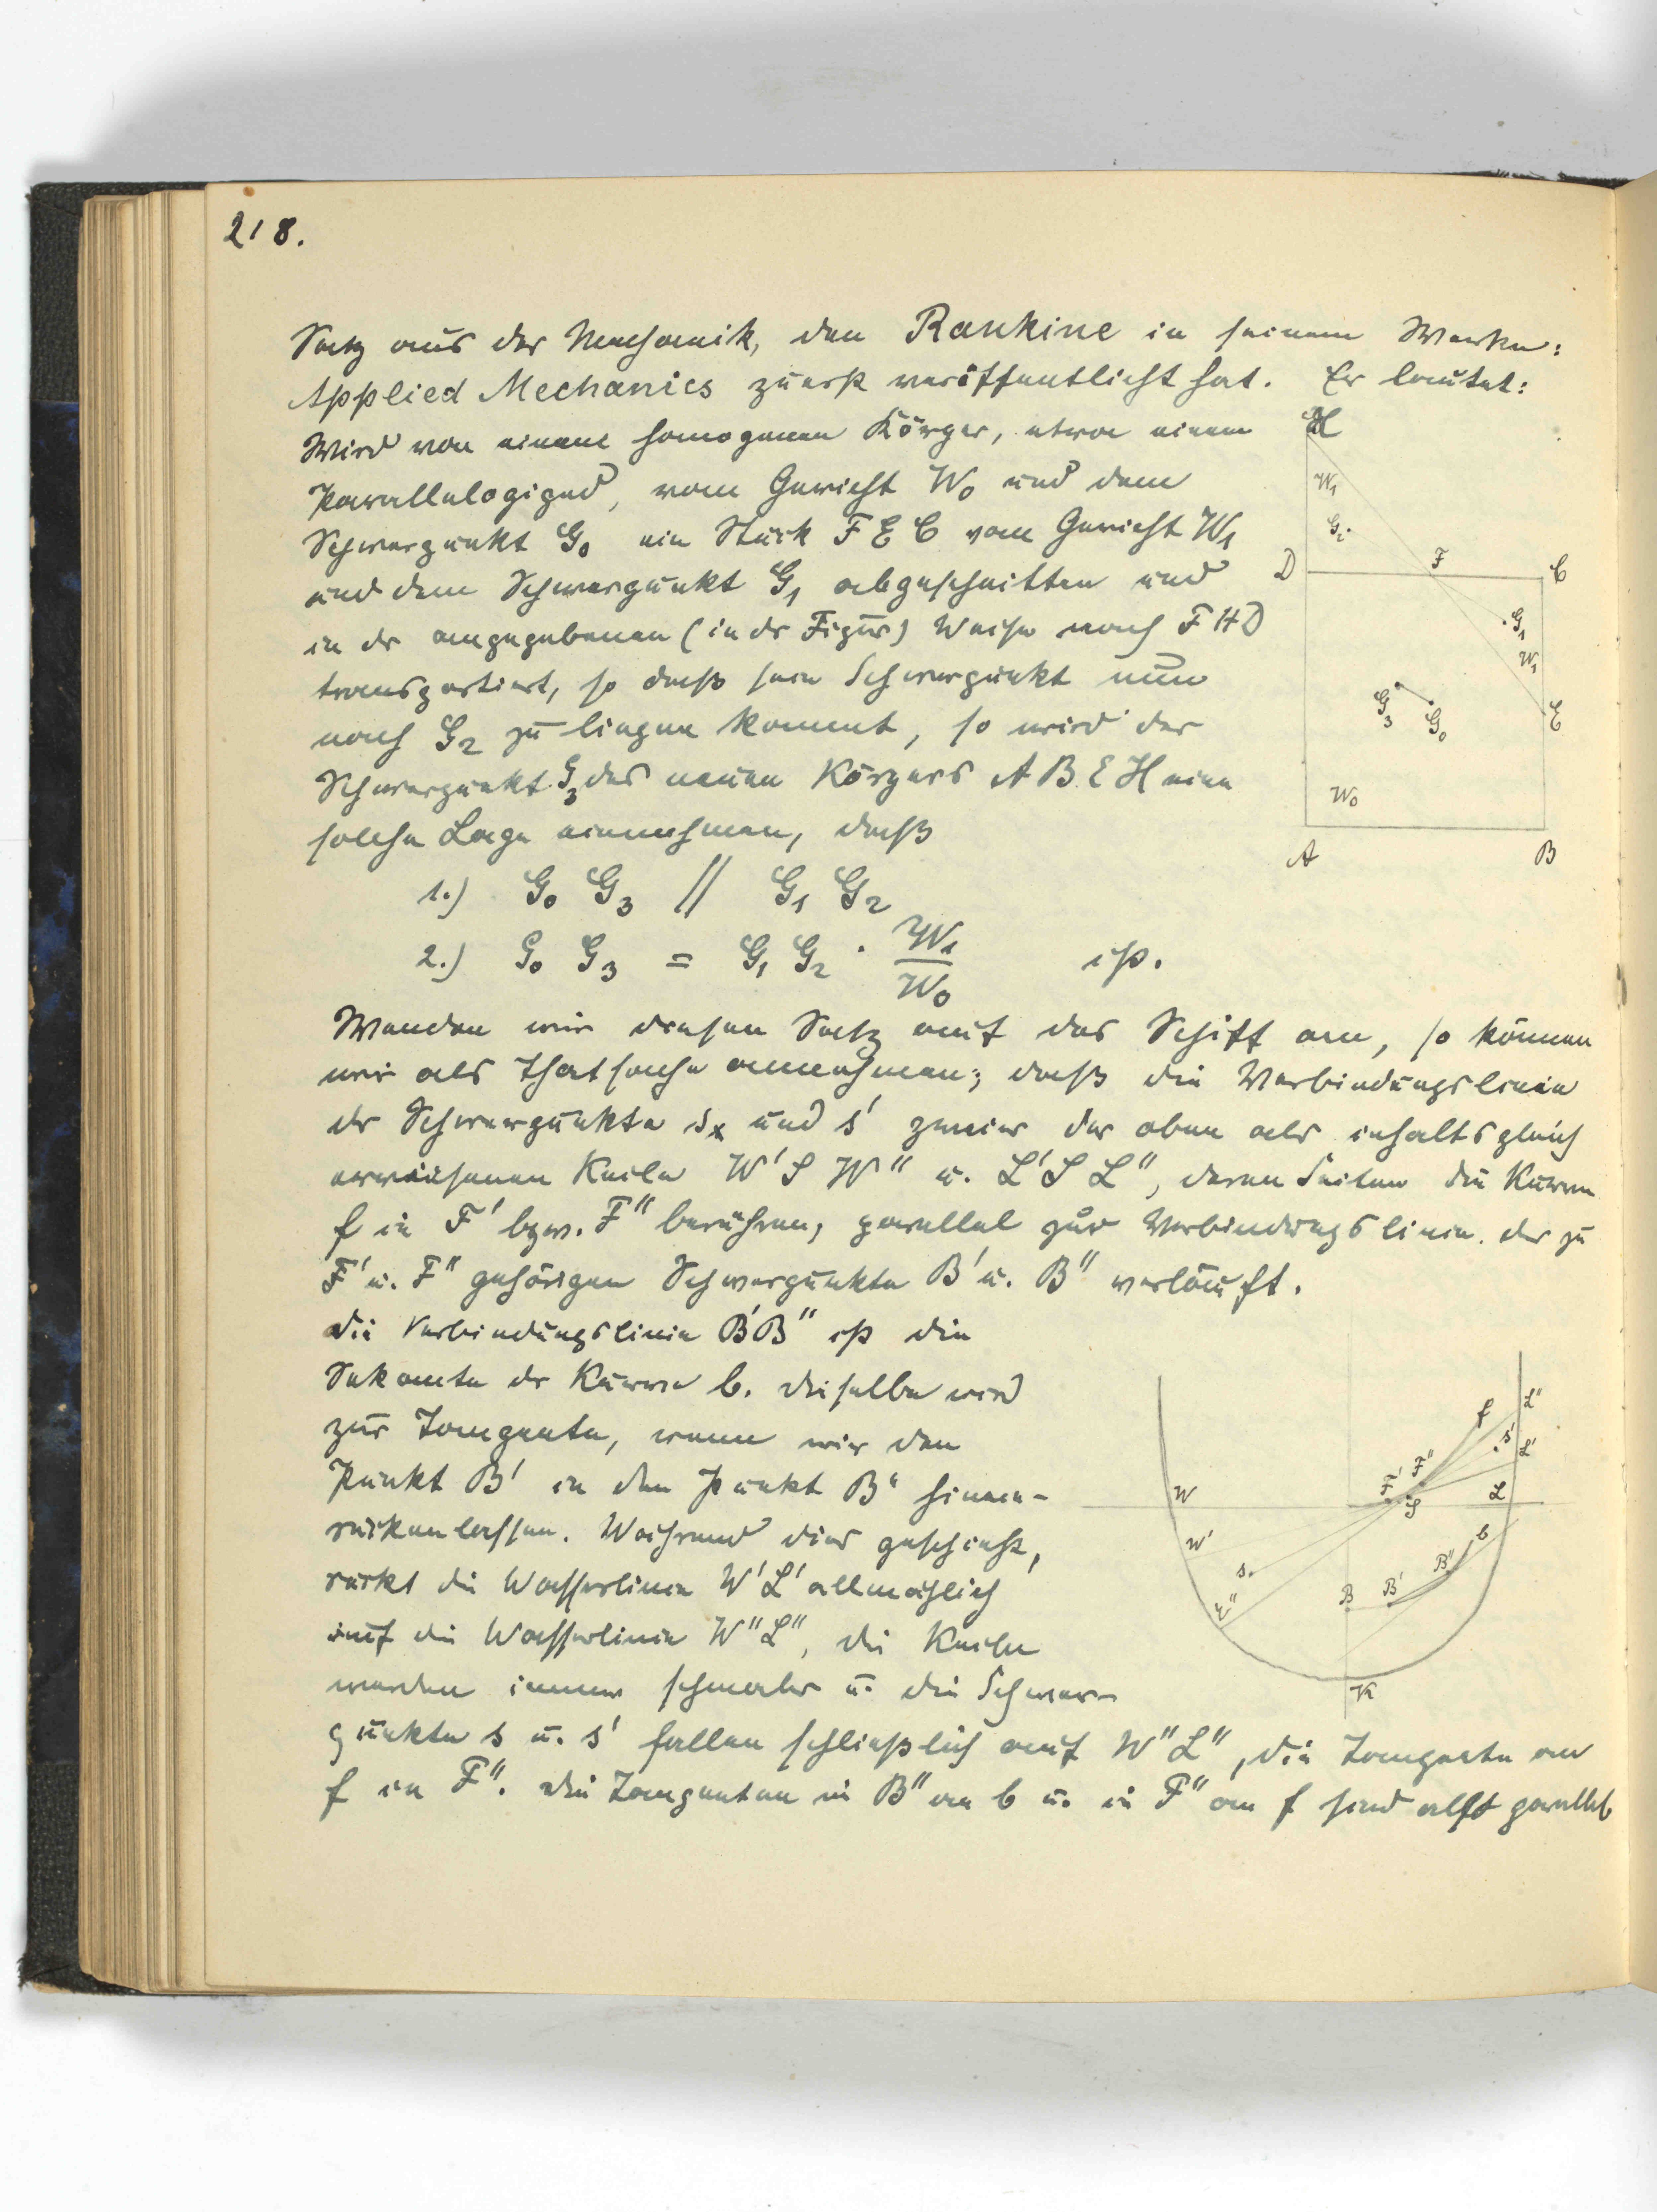 218.
Satz aus der Mechanik, den Rankine in seinem Werke:
Applied Mechanics zuerst veröffentlicht hat. Er lautet:
Wird von einem homogenen Körper, etwa einem
Parallelopiped, vom Gewicht W₀ und dem
Schwerpunkt G₀ ein Stück F E C vom Gewicht W₁
und dem Schwerpunkt G₁ abgeschnitten und
in dr angegebenen (in dr Figur) Weise nach F H D
transportiert, so daß sein Schwerpunkt nun
nach G₂ zu liegen kommt, so wird der
Schwerpunkt G₃ des neuen Körpers A B E H eine
solche Lage einnehmen, daß
1.) G₀ G₃ // G₁ G₂
2.) G₀ G₃ = G₁ G₂ · W₁/W₀ ist.
H
W₁
G₂
D
F
C
G₁
W₁
G₃
G₀
E
W₀
A
B
Wenden wir diesen Satz auf das Schiff an, so können
wir als Thatsache annehmen; daß die Verbindungslinie
dr Schwerpunkte sₓ und s' zweier der oben als inhaltsgleich
erwiesenen Keile W' S W'' u. L' S L'', deren Seiten die Kurve
f in F' bzw. F'' berühren, parallel zur Verbindungslinie der zu
F' u. F'' gehörigen Schwerpunkte B' u. B'' verläuft.
Die Verbindungslinie B'B'' ist die
Sekante dr Kurve b. Dieselbe wird
zur Tangente, wenn wir den
Punkt B' in den Punkt B'' hinein-
rücken lassen. Während dies geschieht,
rückt die Wasserlinie W'L' allmählich
auf die Wasserlinie W''L'', die Keile
werden immer schmaler u. die Schwer-
punkte s u. s' fallen schließlich auf W''L'', die Tangente an
f in F''. Die Tangenten in B'' an b u. in F'' an f sind also parallel
f
L''
s'
L'
F''
F'
S
L
W
W'
s
W''
b
B''
B'
B
K